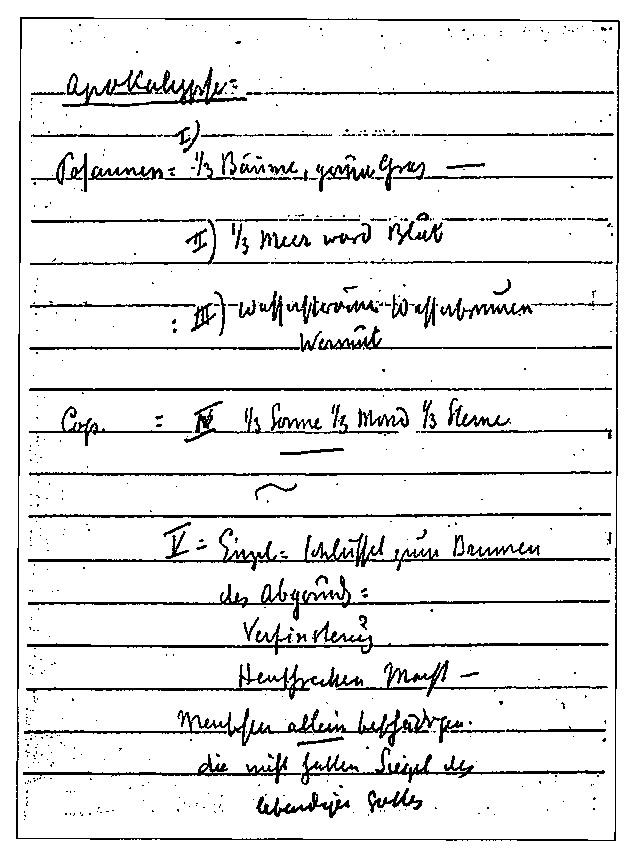 Apokalypse=
I)
Posaunen= 1/3 Bäume, grün Gras —
II) 1/3 Meer ward Blut
: III) Wasserströme Wasserbrunnen
Wermut
Cap. = IV 1/3 Sonne 1/3 Mond 1/3 Sterne
V = Schlüssel zum Brunnen
des Abgrunds=
Verfinsterung
Heuschrecken Macht —
Menschen allein beschädigen.
die nicht hatten Siegel des
lebendigen Gottes